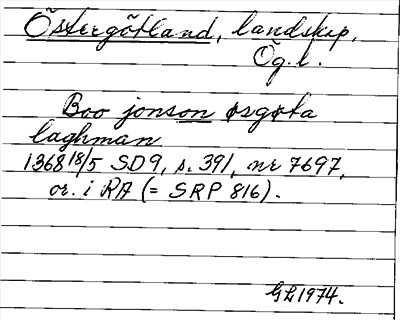 Östergötland, landskap.
Ög.l.
Boo jonson øsgøta
laghman
1368 18/5 SD9, s. 391, nr 7697,
or. i RA (= SRP 816).
GL1974.